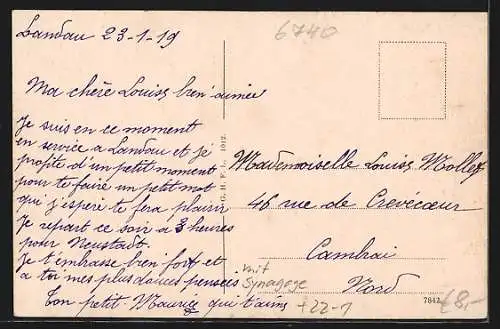 Landau 23-1-19
6740
Ma chère Louise bien aimée
Je suis en ce moment
en service a Landau et je
profite d'un petit moment
pour te faire un petit mot
qui j'espère te fera plaisir
Je repart ce soir a 3 heures
pour Neustadt.
Je t'embrasse bien fort et
a toi mes plus douces pensées
Ton petit Maurice qui t'aime
1912.
Mademoiselle Louise Mollet
46 rue de Crévecœur
Cambrai
Nord
mit
Synagoge
+22-1
7842
€8,-